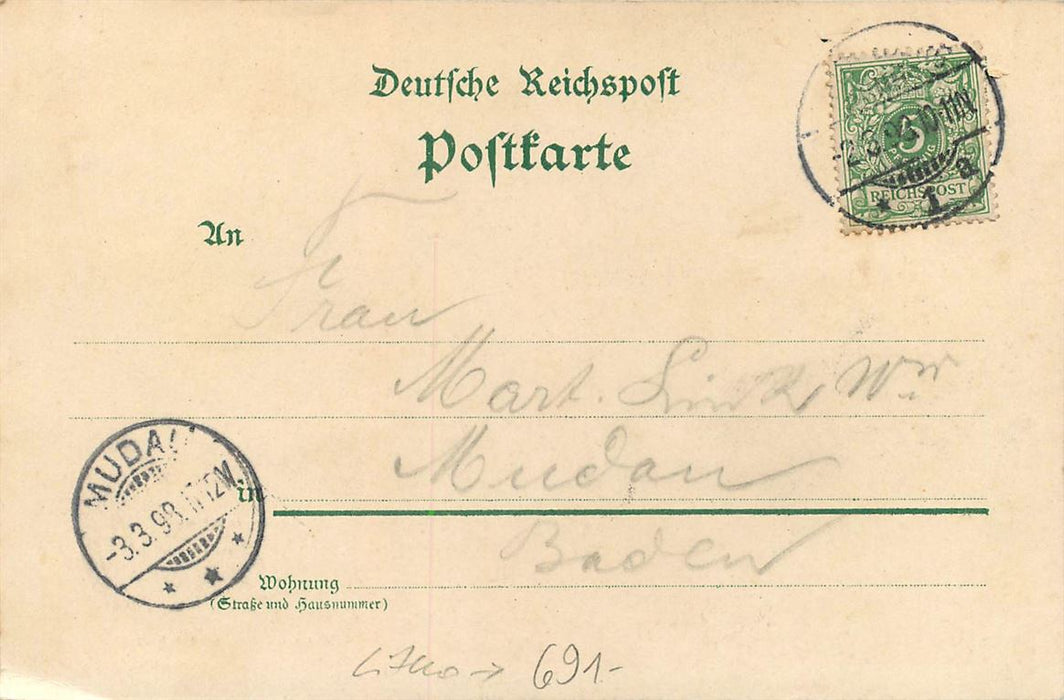 Deutsche Reichspost
Postkarte
REICHSPOST
1 a
An
Frau
Mart. Link, Ww
Mudau
MUDAU
-3.3.98.11-12V.
in
Baden
Wohnung
(Straße und Hausnummer)
Litho → 691-